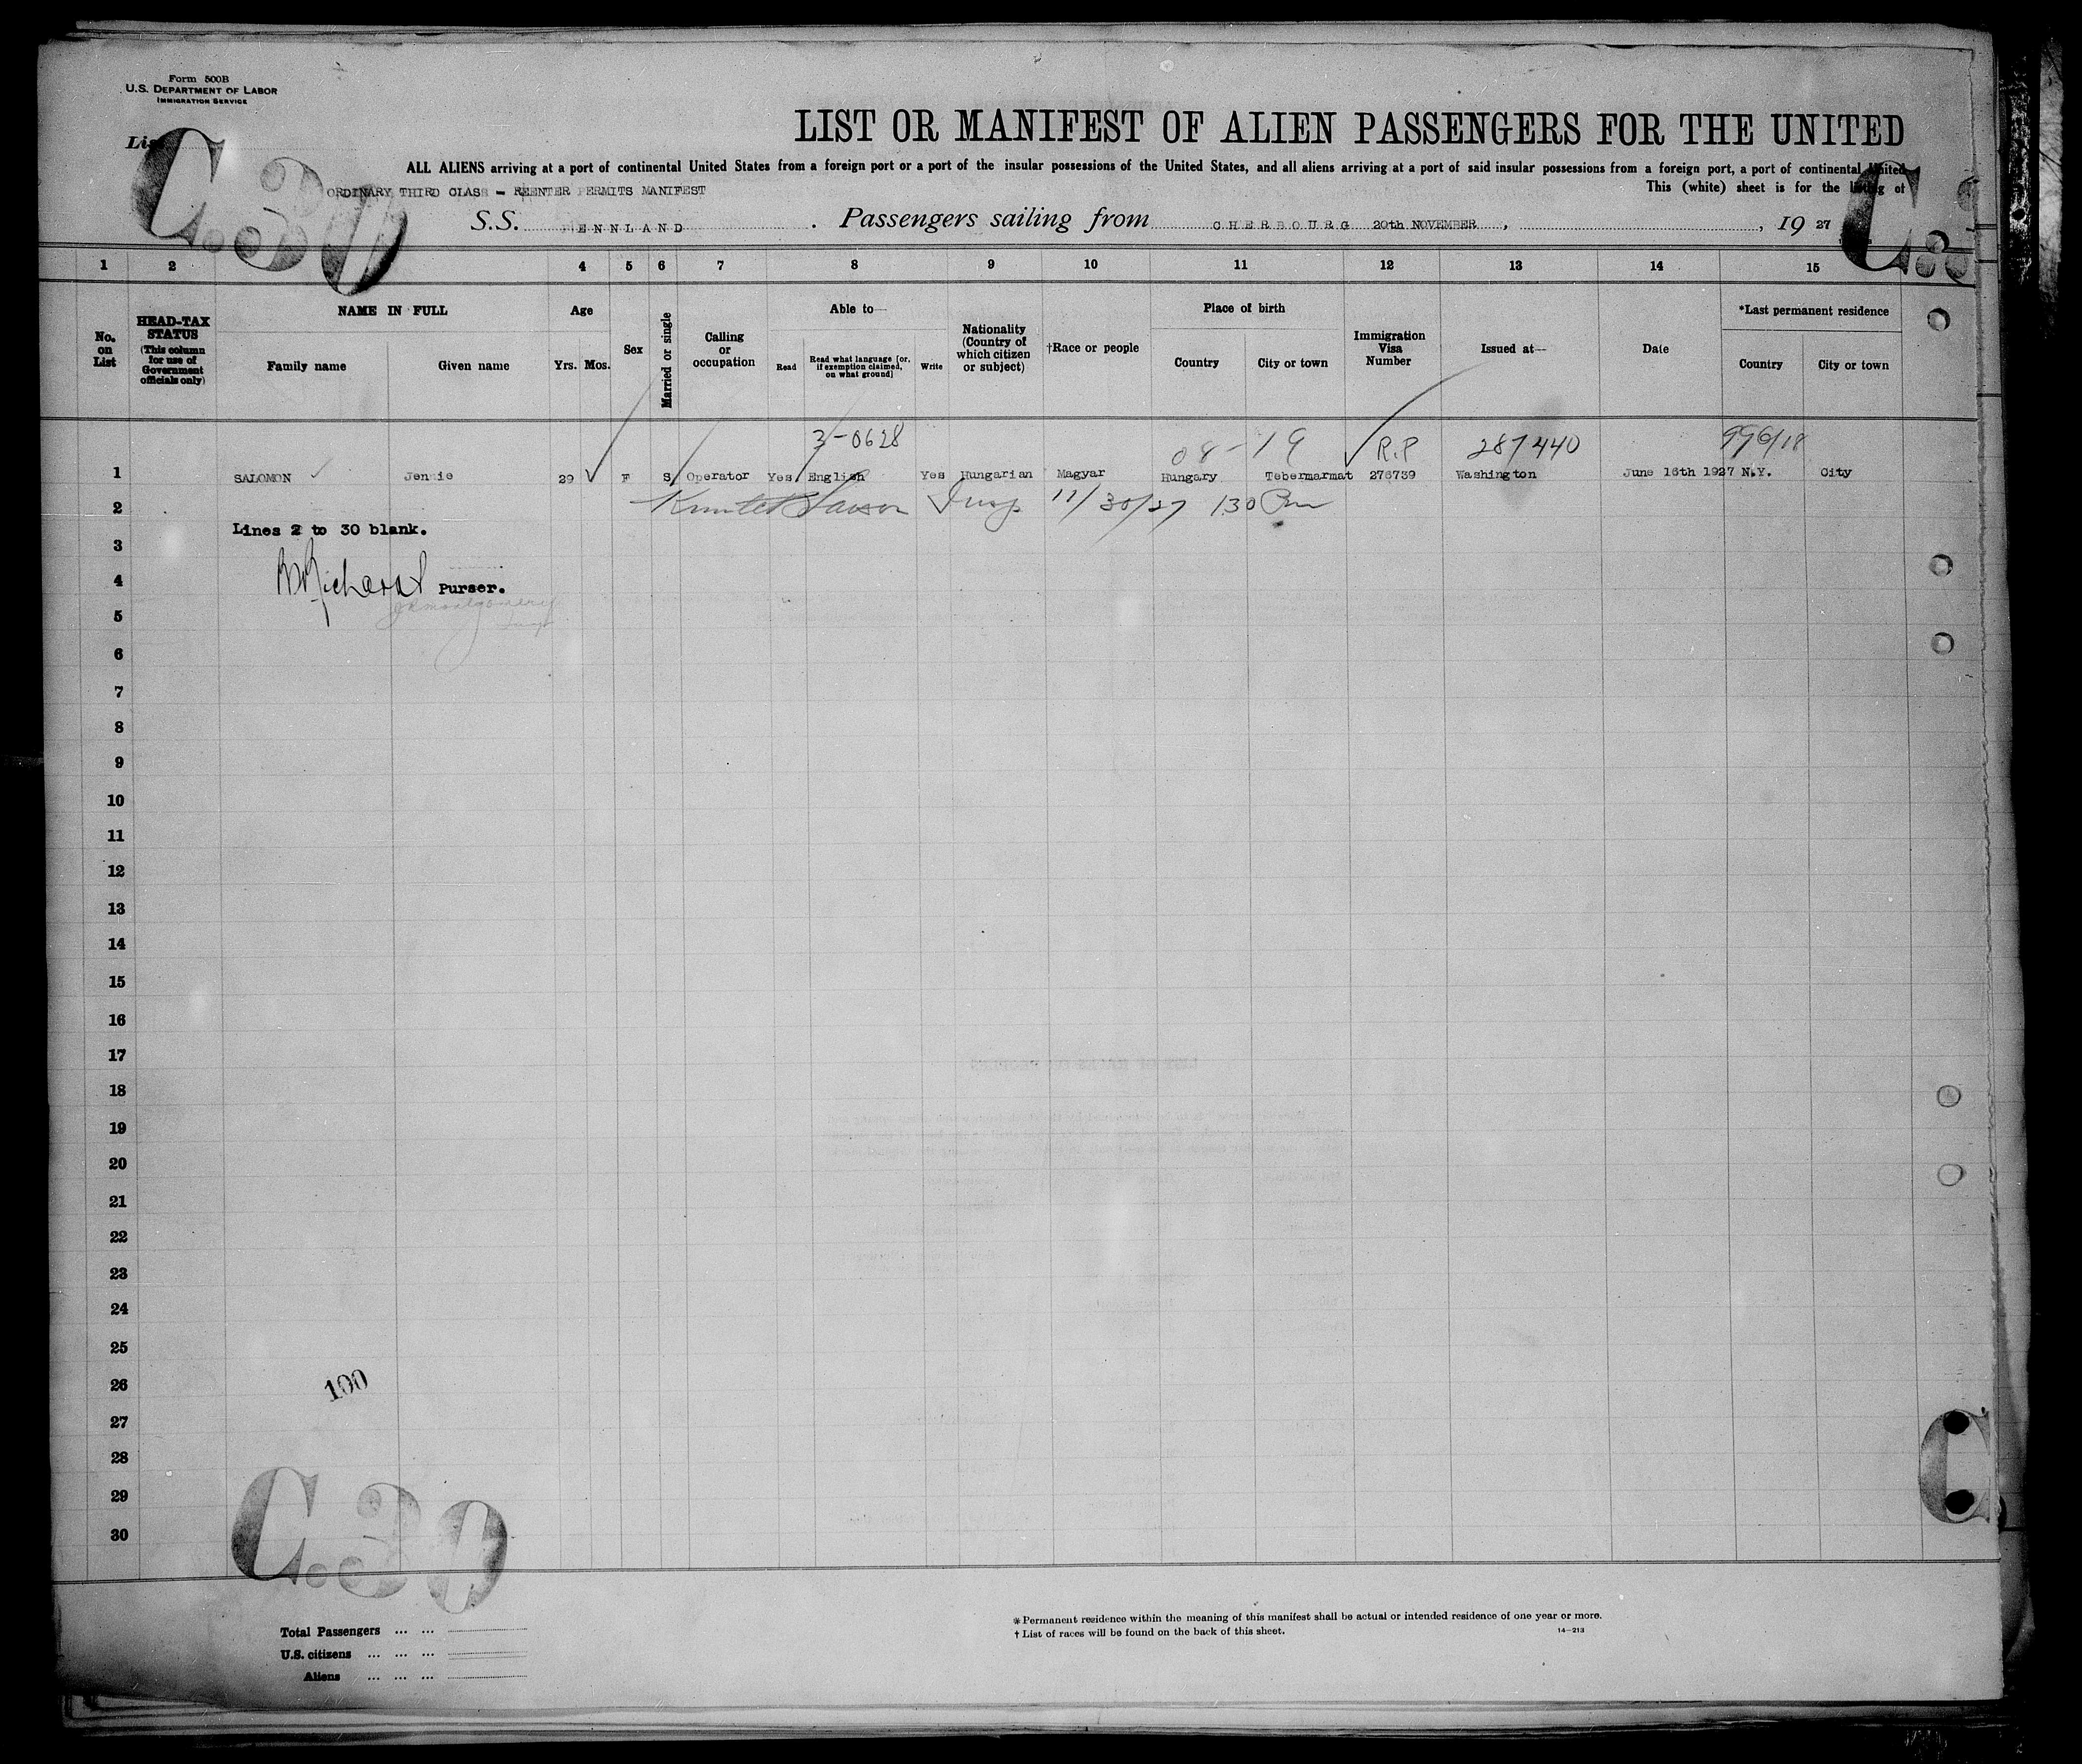 Form 500B
U.S. DEPARTMENT OF LABOR
IMMIGRATION SERVICE
LIST OR MANIFEST OF ALIEN PASSENGERS FOR THE UNITED
List
C.30
ALL ALIENS arriving at a port of continental United States from a foreign port or a port of the insular possessions of the United States, and all aliens arriving at a port of said insular possessions from a foreign port, a port of continental United
This (white) sheet is for the listing of
ORDINARY THIRD CLASS - REENTER PERMITS MANIFEST
S.S. PENNLAND. Passengers sailing from CHERBOURG 20th NOVEMBER, , 19 27
1 2 4 5 6 7 8 9 10 11 12 13 14 15
No. on List
HEAD-TAX STATUS (This column for use of Government officials only)
NAME IN FULL
Family name Given name
Age
Yrs. Mos.
Sex
Married or single
Calling or occupation
Able to—
Read Read what language [or, if exemption claimed, on what ground] Write
Nationality (Country of which citizen or subject)
†Race or people
Place of birth
Country City or town
Immigration Visa Number
Issued at—
Date
*Last permanent residence
Country City or town
3-0628 08-19 R.P 287440 996/18
1 SALOMON Jennie 29 F S Operator Yes English Yes Hungarian Magyar Hungary Tebermarmat 276739 Washington June 16th 1927 N.Y. City
2 Insp 11/30/27 130 Pm
Lines 2 to 30 blank.
3
4 Purser.
5 Montgomery
6
7
8
9
10
11
12
13
14
15
16
17
18
19
20
21
22
23
24
25
26 100
27
28
29
30
C.30
C
Total Passengers ... ...
U.S. citizens ... ... ...
Aliens ... ... ...
* Permanent residence within the meaning of this manifest shall be actual or intended residence of one year or more.
† List of races will be found on the back of this sheet.
14—213